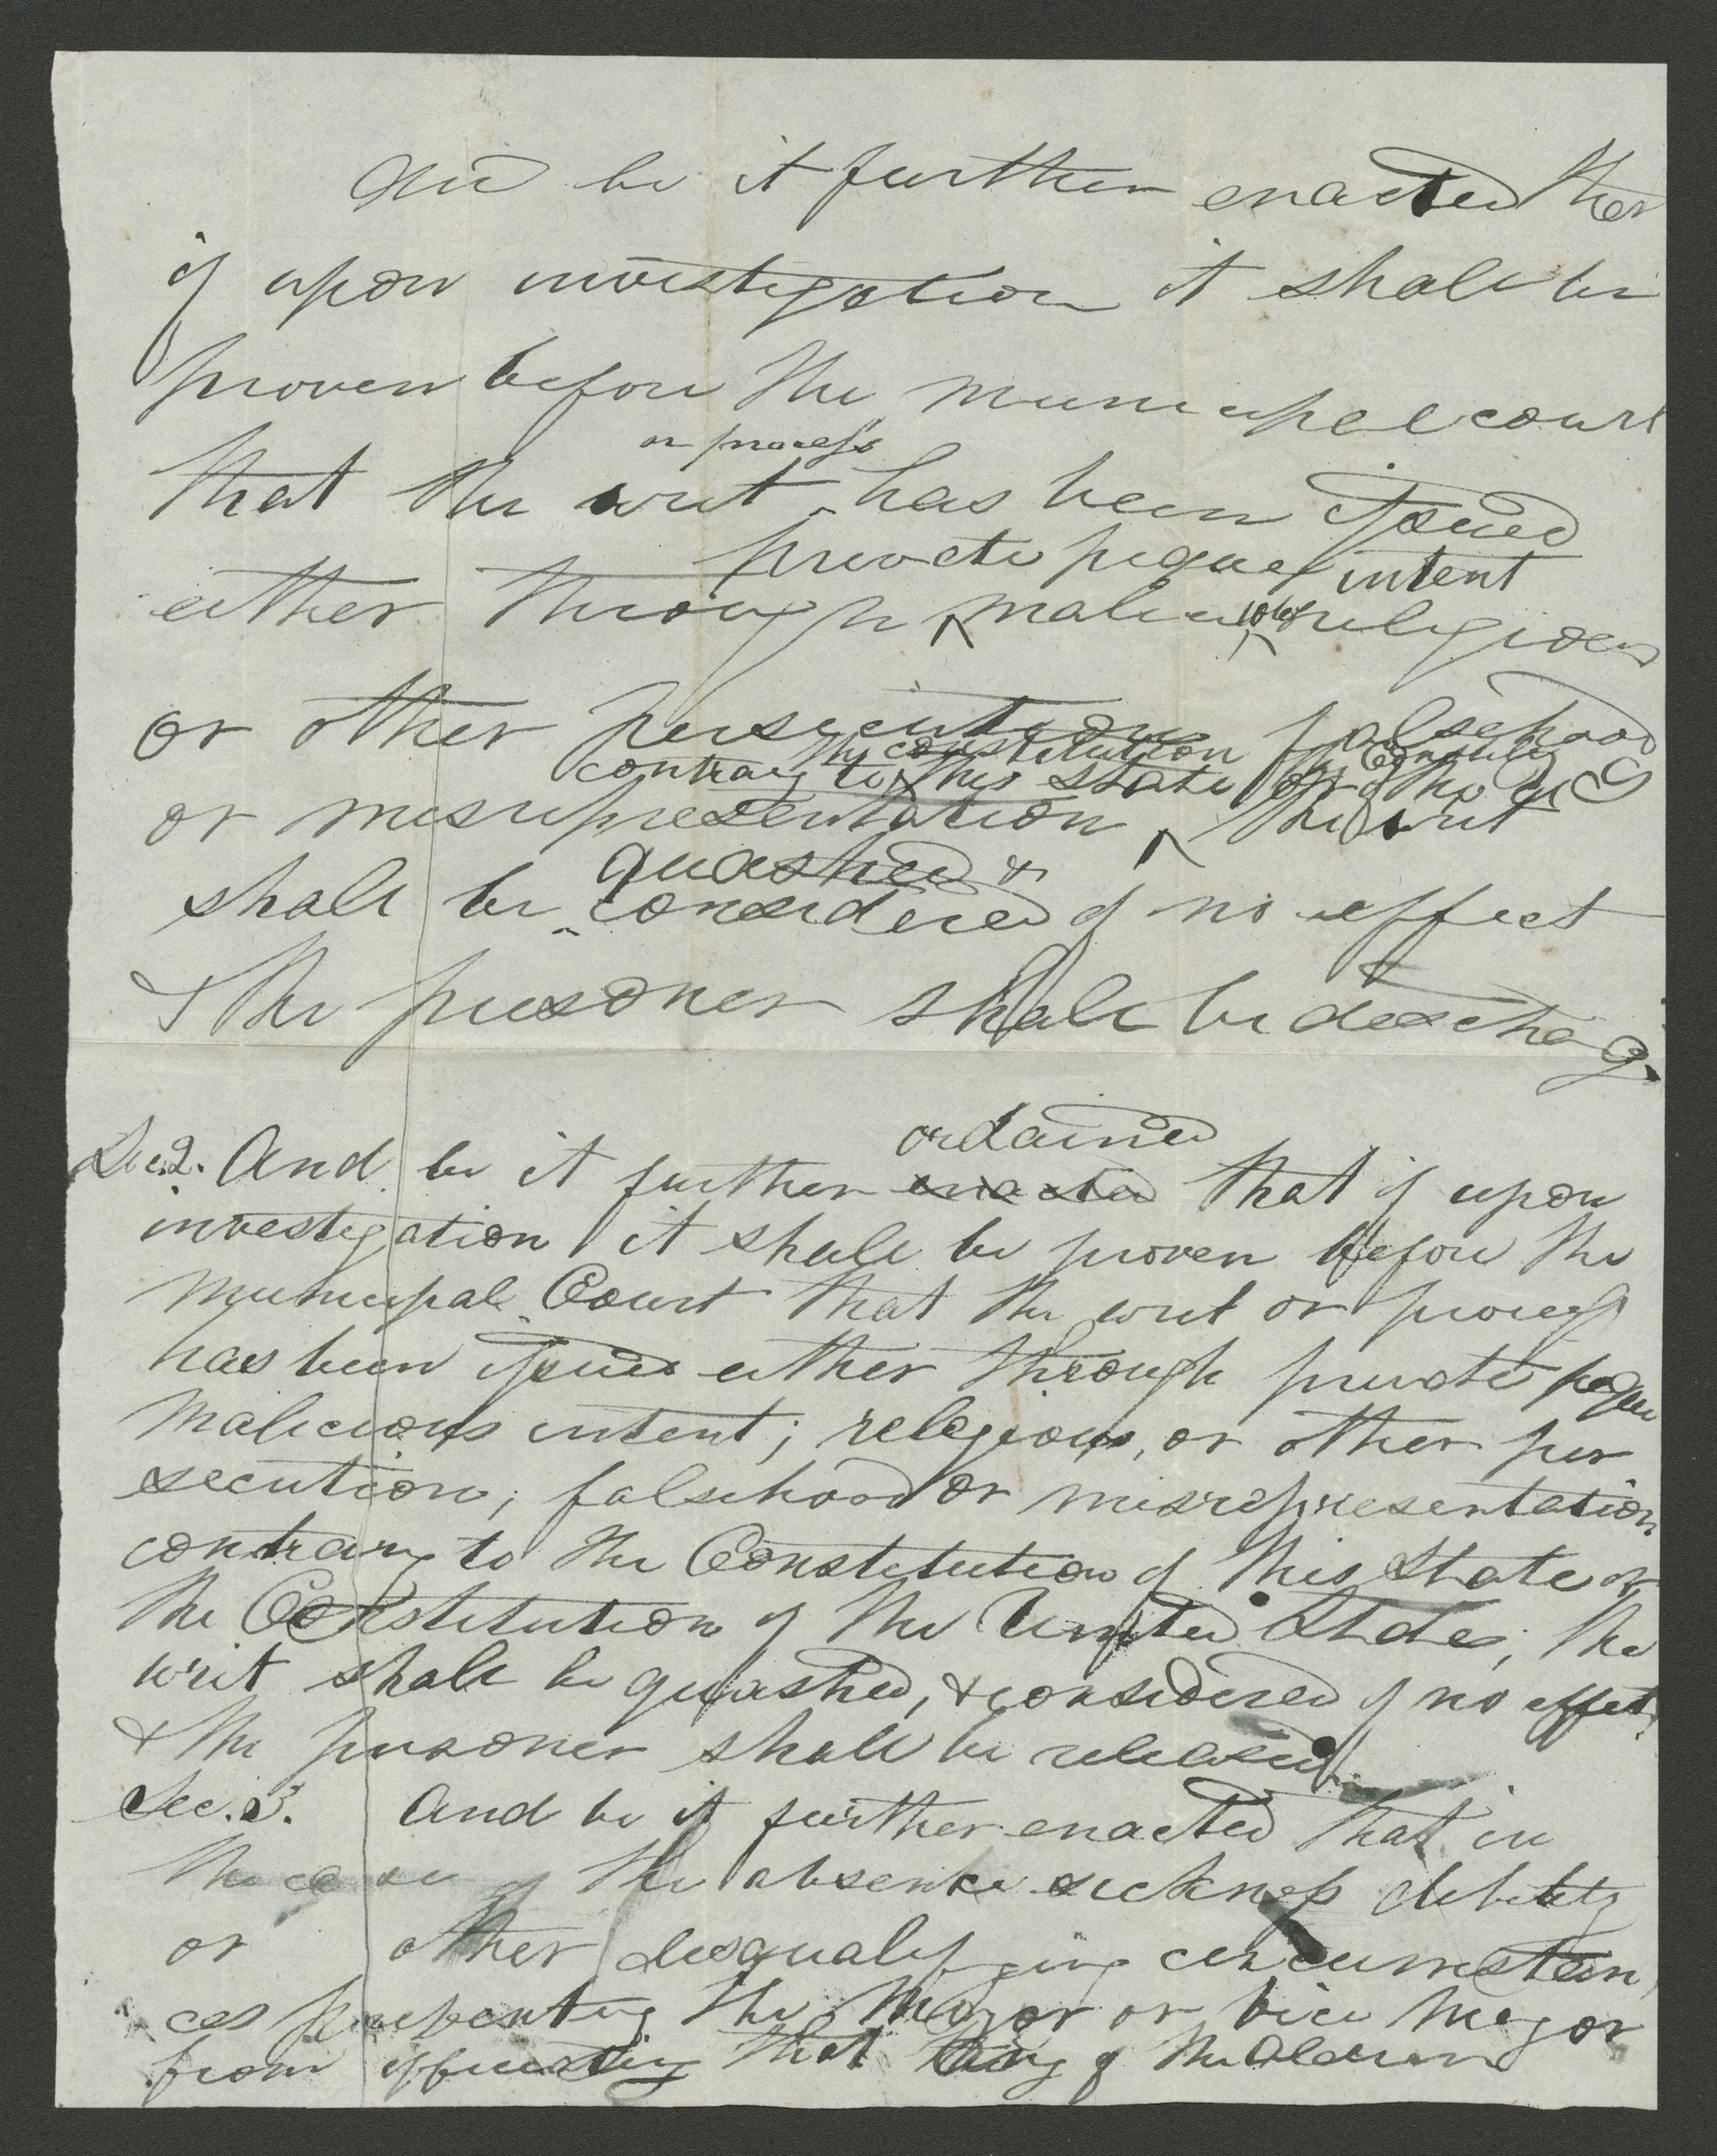 And be it further enacted that
if upon investigation it shall be
proven before the municipal court
or process
that the writ has been issued
private pique intent
either through malicious religious
or other persecution falsehood
the constitution the Constitu
contrary to this state or of the U S
or misrepresentation the writ
quashed &
shall be considered of no effect
& the prisoner shall be discharg
ordained
Sec. 2. And be it further enacted that if upon
investigation it shall be proven before the
Municipal Court that the writ or process
has been issued either through private pique
malicious intent; religious, or other per
secution; falsehood or misrepresentation
contrary to the Constitution of this State or
the Constitution of the United States, the
writ shall be quashed, & considered of no effect,
& the prisoner shall be released.
Sec. 3. And be it further enacted that in
the case of the absence sickness debility
or other disqualifying circumstan
ces preventing the Mayor or vice Mayor
from officiating that any of the Aldermen